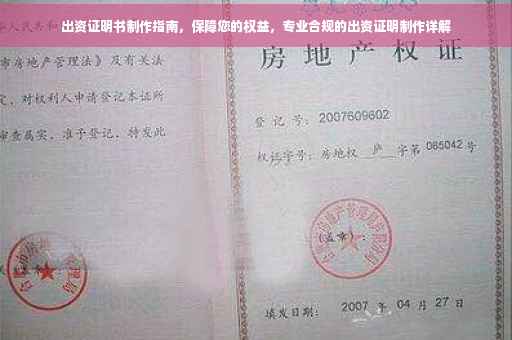 出资证明书制作指南，保障您的权益，专业合规的出资证明制作详解
华人民共和国
市房地产管理法》及有关
定，对权利人申请登记本证所
审查属实，准予登记，特发此
房地产权证
登记号：2007609602
权证字号：房地权 庐 字第 065042 号
(盖章)：
填发日期：2007 年 04 月 27 日